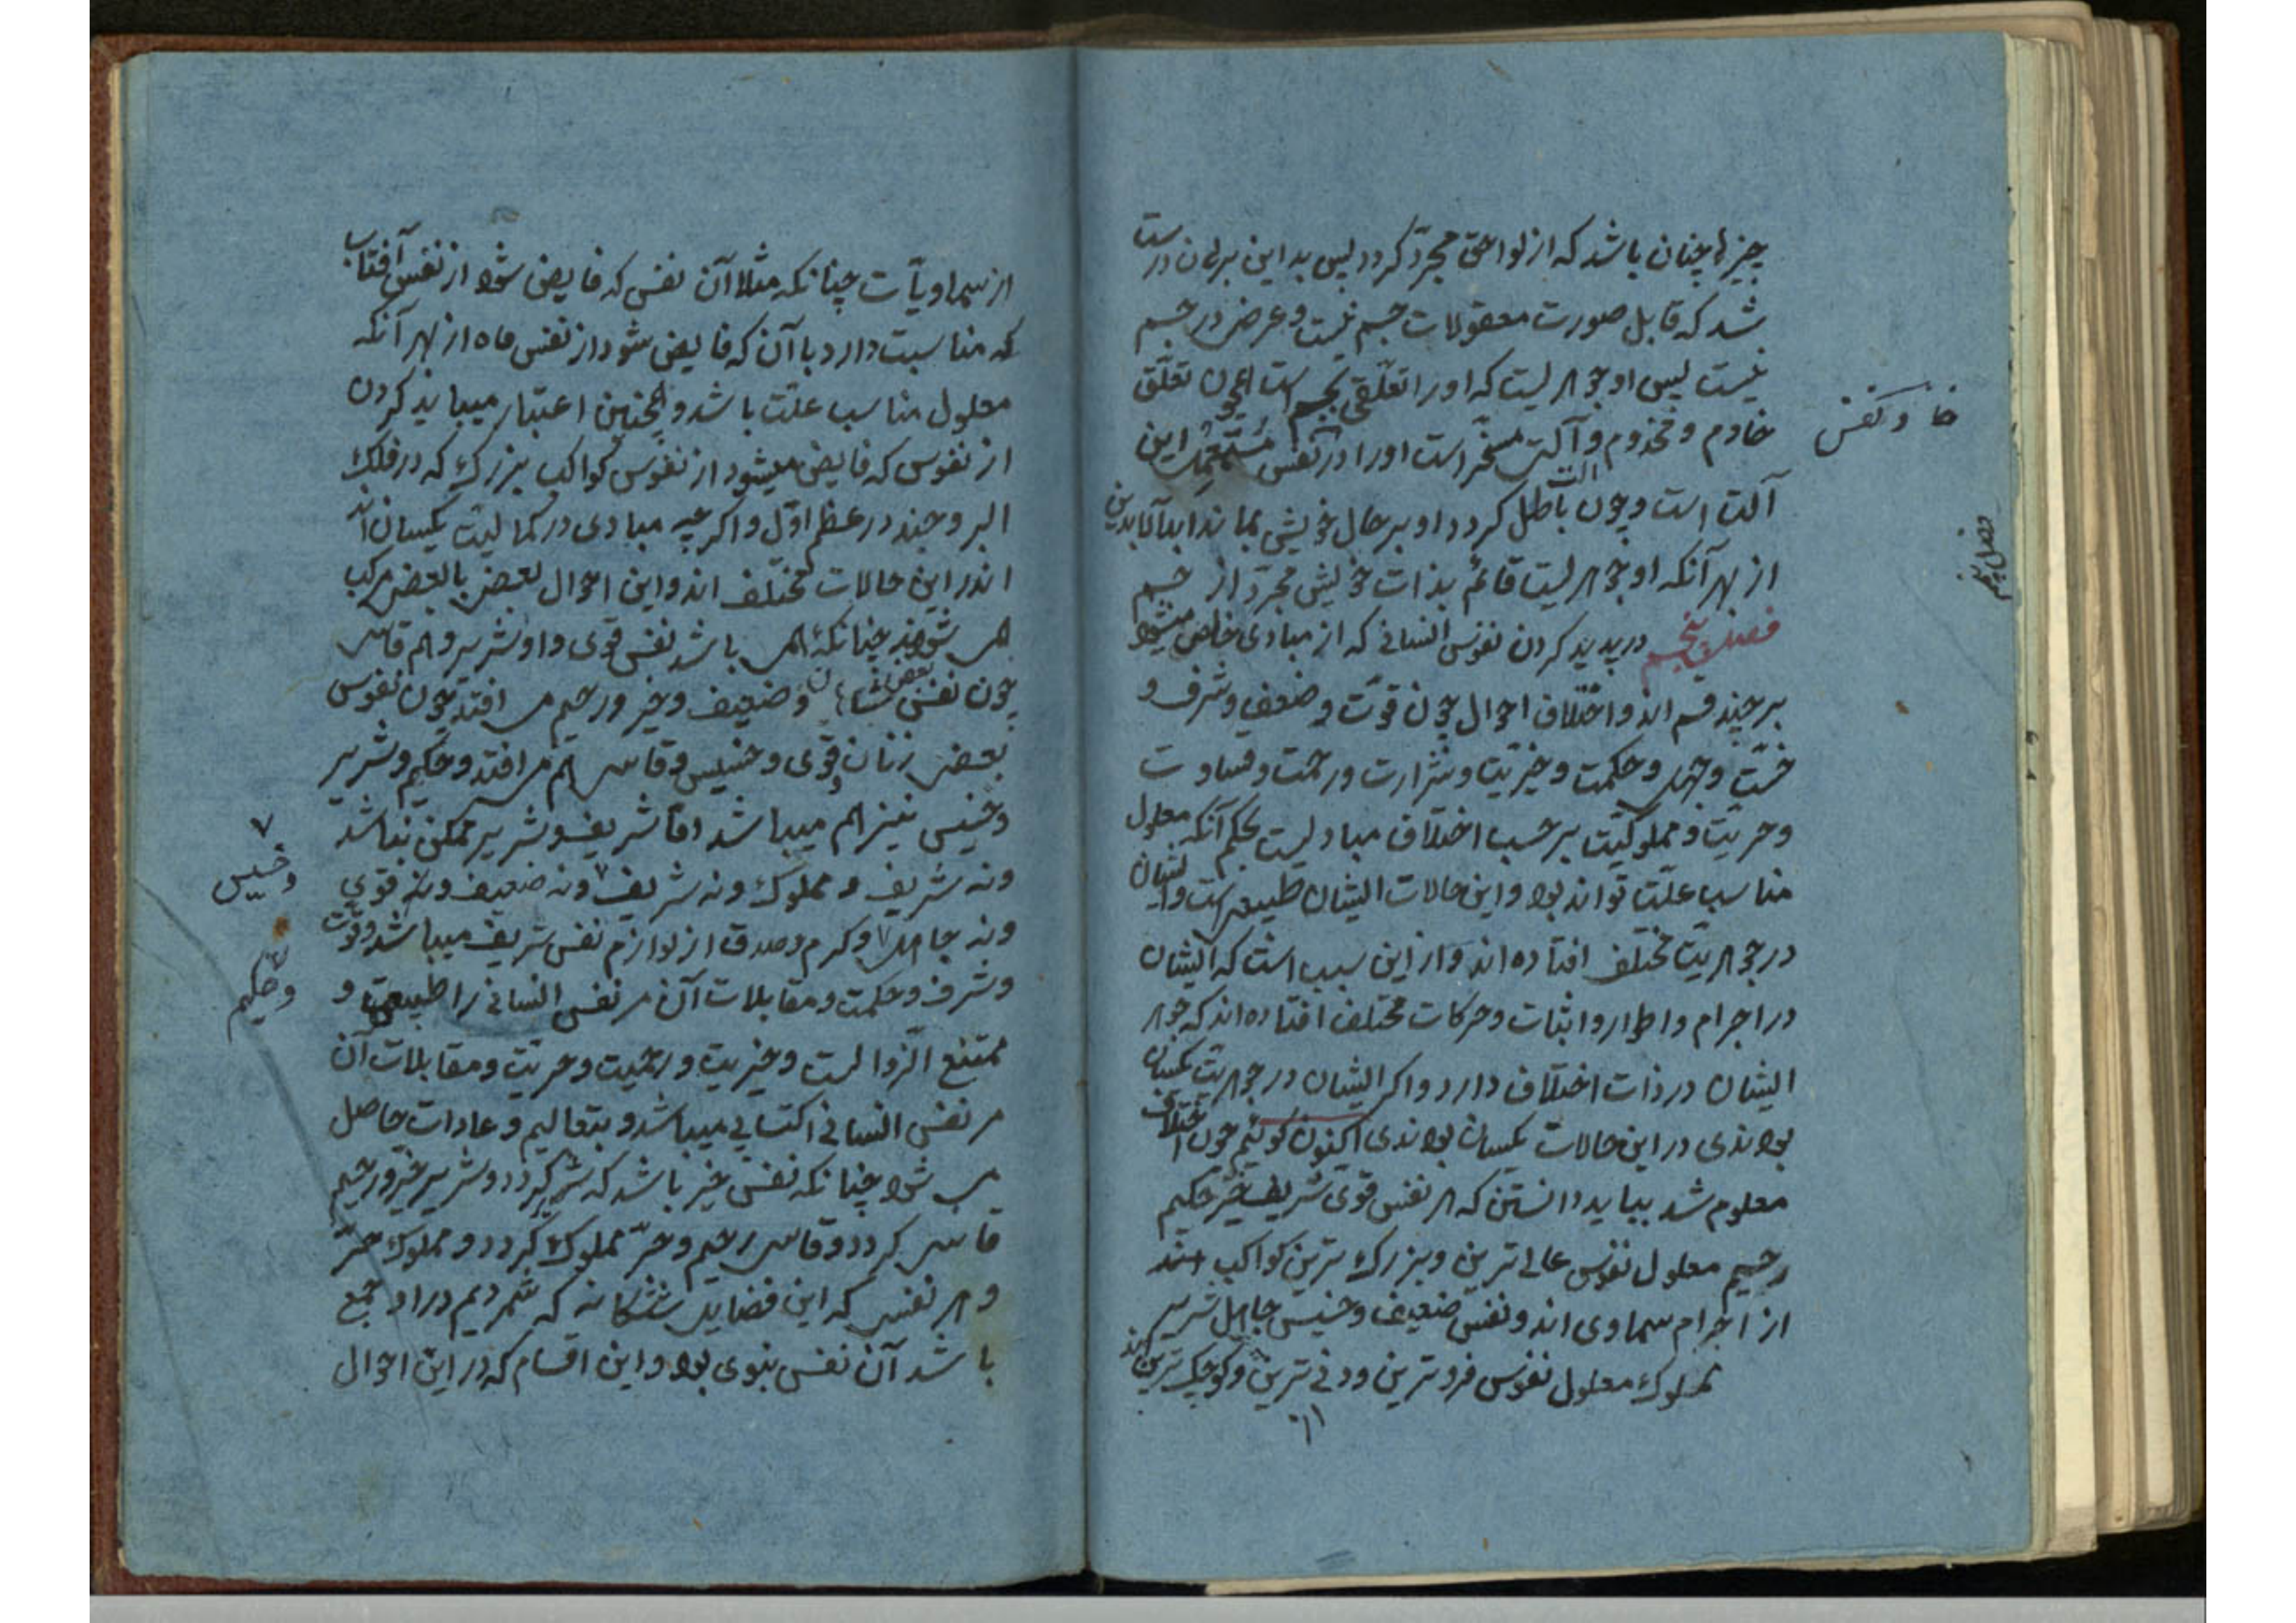 چیزها چنان باشد که از لواحق مجرد کردد پس بداین برهان درست
شد که قابل صورت معقولات جسم نیست و عرض در جسم
نیست پس او جوهریست که اورا تعلقی بجسم است همچون تعلق
خادم و مخدوم و آلت مسخر است اورا در نفس مستعمل این
آلت است و چون آلت باطل کردد او بر حال خویش بماند ابدآلابدین
از بهر آنکه او جوهریست قائم بذات خویش مجرد از جسم
فصل پنجم در پدید کردن نفوس انسانی که از مبادی خاص میشود
بر چند قسم اند و اختلاف احوال چون قوت و ضعف و شرف و
خست و جهل و حکمت و خیریت و شرارت و رحمت و قساوت
و حریت و مملوکیت بر حسب اختلاف مبادیست بحکم آنکه معلول
مناسب علت تواند بود و این حالات ایشان طبیعی است و ایشان
در جوهریت مختلف افتاده اند و از این سبب است که ایشان
در اجرام و اطوار و اثبات و حرکات مختلف افتاده اند که جوهر
ایشان در ذات اختلاف دارد و اکر ایشان در جوهریت یکسان
بودندی در این حالات یکسان بودندی اکنون کوئیم چون اختلاف
معلوم شد بباید دانستن که هر نفس قوی شریف خیر حکیم
رحیم معلول نفوس عالی ترین و بزرک ترین کواکب
از اجرام سماوی اند و نفس ضعیف و خسیس جاهل شریر
مملوک معلول نفوس فروترین و دنی ترین و کوچک ترین اند
خا و نفس
فصل پنجم
از سماویآت چنانکه مثلا آن نفس که فایض شود از نفس آفتاب
که مناسبت دارد با آن که فایض شود از نفس ماه از بهر آنکه
معلول مناسب علت باشد و همچنین اعتبار میباید کردن
از نفوس که فایض میشود از نفوس کواکب بزرک که در فلک
البروجند در عظم اول و اکرچه مبادی در کمالیت یکسان اند
اندر این حالات مختلف اند و این احوال بعض با بعض مرکب
همی شوند چنانکه همی باشد نفس قوی و او شریر و هم قاسی
چون نفس بعضی و ضعیف و خیر و رحیم می افتد چون نفوس
بعضی زنان و قوی و خسیس و قاسی هم می افتد و حکیم و شریر
و خسیس نیز هم میباشد اما شریف و شریر ممکن نباشد
و نه شریف و مملوک و نه شریف و نه ضعیف و نه قوی
و نه جاهل و کرم و صدق از لوازم نفس شریف میباشد و قوت
و شرف و حکمت و مقابلات آن مر نفس انسانی را طبیعی و
ممتنع الزوالست و خیریت و رحمیت و حریت و مقابلات آن
مر نفس انسانی اکتسابی میباشد و بتعالیم و عادات حاصل
می شود چنانکه نفس خیر باشد که شریر کردد و شریر خیر و رحیم
قاسی کردد و قاسی رحیم و حر مملوک کردد و مملوک حر
و هر نفس که این فضایل ششکانه که شمردیم در او جمع
باشد آن نفس نبوی بود و این اقسام که در این احوال
و خسیس
و حکیم